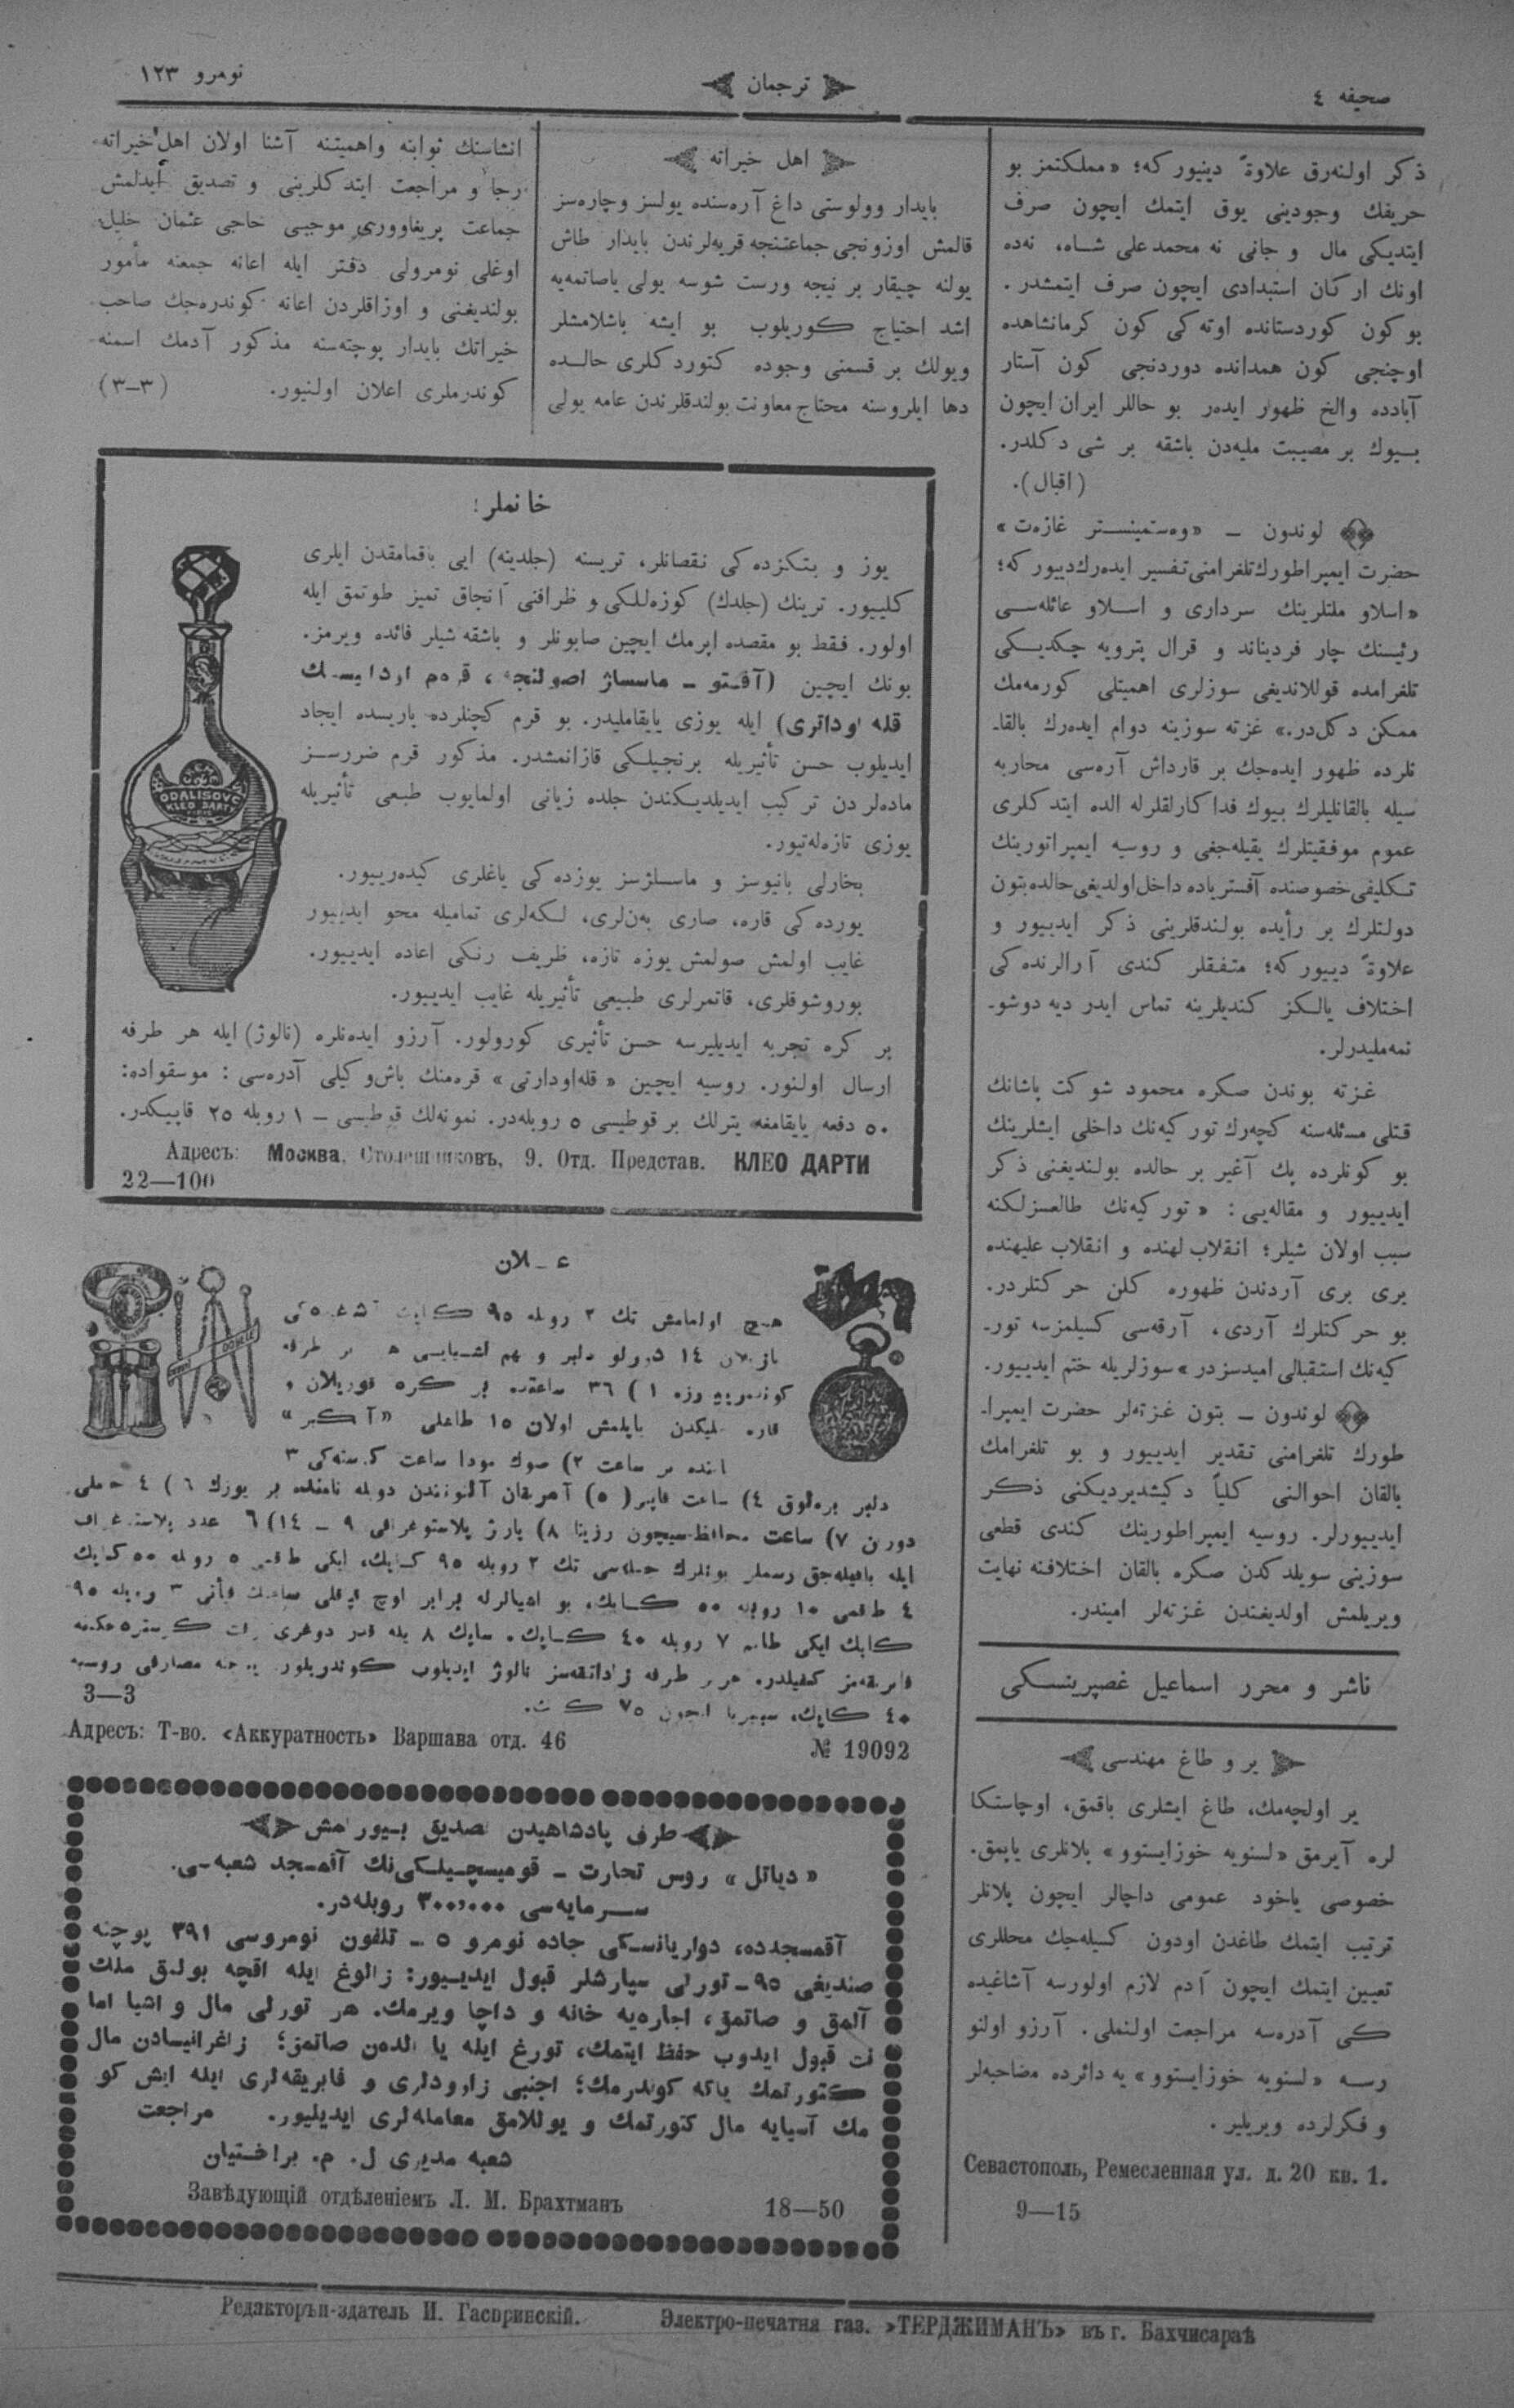 صحیفه ٤
ترجمان
نومرو ١٢٣
ذكر اولنه‌رق علاوةً دینیور كه؛ «مملكتمز بو
حریفك وجودینی یوق ایتمك ایچون صرف
ایتدیكی مال و جانی نه محمد علی شـاه، نه‌ده
اونك اركان استبدادی ایچون صرف ایتمشدر.
بو كون كوردستانده اوته‌كی كون كرمانشاهده
اوچنجی كون همدانده دوردنجی كون آستار
آبادده والخ ظهور ایده‌ر بو حاللر ایران ایچون
بـیوك بر مصیبت ملیه‌دن باشقه بر شی دكلدر.
(اقبال).
لوندون ـ «وه‌ستمینسـتر غازه‌ت»
حضرت ایمپراطورك تلغرامنی تفسیر ایده‌رك دییور كه؛
«اسلاو ملتلرینك سرداری و اسـلاو عائله‌سـی
رئیسنك چار فردیناند و قرال پترویه چكدیـكی
تلغرامده قوللاندیغی سوزلری اهمیتلی كورمه‌مك
ممكن دكل‌در.» غزته سوزینه دوام ایده‌رك بالقا-
نلرده ظهور ایده‌جك بر قارداش آره‌سی محاربه
سیله بالقانلیلرك بیوك فداكارلقلرله الده ایتدكلری
عموم موفقیتلرك یقیله‌جغی و روسیه ایمپراتورینك
تـكلیفی خصوصنده آفستریاده داخل اولدیغی حالده بتون
دولتلرك بر رأیده بولندقلرینی ذكر ایدییور و
علاوةً دییور كه؛ متفقلر كندی آرالرنده‌كی
اختلاف یالـكز كندیلرینه تماس ایدر دیه دوشو-
نمه‌ملیدرلر.
غزته بوندن صكره محمود شوكت پاشانك
قتلی مسئله‌سنه كچه‌رك توركیه‌نك داخلی ایشلرینك
بو كونلرده پك آغیر بر حالده بولندیغنی ذكر
ایدییور و مقاله‌یی: «توركیه‌نك طالعسزلكنه
سبب اولان شیلر؛ انقلاب لهنده و انقلاب علیهنده
بری بری آردندن ظهوره كلن حركتلردر.
بو حركتلرك آردی، آرقه‌سی كسیلمزسه تور-
كیه‌نك استقبالی امیدسزدر» سوزلریله ختم ایدییور.
لوندون ـ بتون غزته‌لر حضرت ایمپرا-
طورك تلغرامنی تقدیر ایدییور و بو تلغرامك
بالقان احوالنی كلیاً دكیشدیردیكنی ذكـر
ایدییورلر. روسیه ایمپراطورینك كندی قطعی
سوزینی سویلدكدن صكره بالقان اختلافنه نهایت
ویریلمش اولدیغندن غزته‌لر امیندر.
ناشر و محرر اسماعیل غصپرینسـكی
یر و طاغ مهندسی
یر اولچه‌مك، طاغ ایشلری باقمق، اوچاستكا
لره آیرمق «لسنویه خوزایستوو» پلانلری یاپمق.
خصوصی یاخود عمومی داچالر ایچون پلانلر
ترتیب ایتمك طاغدن اودون كسیله‌جك محللری
تعیین ایتمك ایچون آدم لازم اولورسه آشاغیده
كی آدره‌سه مراجعت اولنملی. آرزو اولنو
رسـه «لسنویه خوزایستوو» یه دائرده مصاحبه‌لر
و فكرلرده ویریلیر.
Севастополь, Ремесленная ул. д. 20 кв. 1.
9—15
اهل خیراته
بایدار وولوستی داغ آره‌سنده یولسز وچاره‌سز
قالمش اوزونجی جماعتنجه قریه‌لرندن بایدار طاش
یولنه چیقار بر نیجه ورست شوسه یولی یاصاتمه‌یه
اشد احتیاج كوریلوب بو ایشه باشلامشلر
ویولك بر قسمنی وجوده كتوردكلری حالـده
دها ایلروسنه محتاج معاونت بولندقلرندن عامه یولی
انشاسنك ثوابنه واهمیتنه آشنا اولان اهل خیراته
رجا و مراجعت ایتدكلرینی و تصدیق ایدلمش
جماعت پریغاووری موجبی حاجی عثمان خلیل
اوغلی نومرولی دفتر ایله اعانه جمعنه مأمور
بولندیغنی و اوزاقلردن اعانه كوندره‌جك صاحب
خیراتك بایدار پوچته‌سنه مذكور آدمك اسمنه
كوندرملری اعلان اولنیور. (٣–٣)
خانملر!
یوز و بتـكزده‌كی نقصانلر، تریسنه (جلدینه) ایی باقمامقدن ایلری
كلییور. ترینك (جلدك) كوزه‌للـكی و ظرافتی آنجاق تمیز طوتمق ایله
اولور. فقط بو مقصده ایرمك ایچین صابونلر و باشقه شیلر فائده ویرمز.
بونك ایچین (آفـتو ـ ماسساژ اصولنجه، قره‌م اودالیسـك
قله‌اوداتری) ایله یوزی یایقاملیدر. بو قرم كچنلرده پاریسده ایجاد
ایدیلوب حسن تأثیریله برنجیلـكی قازانمشدر. مذكور قرم ضررسـز
ماده‌لردن تركیب ایدیلدیـكندن جلده زیانی اولمایوب طبیعی تأثیریله
یوزی تازه‌له‌تیور.
بخارلی بانیوسز و ماسساژسز یوزده‌كی یاغلری كیده‌رییور.
یورده‌كی قاره، صاری به‌ن‌لری، لـكه‌لری تمامیله محو ایدییور
غایب اولمش صولمش یوزه تازه، ظریف رنـكی اعاده ایدییور.
بوروشوقلری، قاتمرلری طبیعی تأثیریله غایب ایدییور.
بر كره تجربه ایدیلیرسه حسن تأثیری كورولور. آرزو ایده‌نلره (نالوژ) ایله هر طرفه
ارسال اولنور. روسیه ایچین «قله‌اودارتی» قره‌منك باش‌وكیلی آدره‌سی: موسقواده:
٥٠ دفعه یایقامغه یترلك بر قوطیسی ٥ روبله‌در. نمونه‌لك قوطیسی – ١ روبله ٢٥ قاپیكدر.
ODALISQUE
KLEO DARTY
Адресъ: Москва, Столешниковъ, 9. Отд. Представ. КЛЕО ДАРТИ
22—100
اعـلان
هیچ اولمامش تك ٢ روبله ٩٥ كاپك
١٤ دورلو دلبر و مهم اشیایی هر بر طرفه
١) ٣٦ ساعتده بر كره قوریلان و
یاپلمش اولان ١٥ طاشلی
ساعت ٢) صوك مودا ساعت ٣
بره‌لوق ٤) ٥) آمریقان آلتونندن دوبله بر یوزك ٦)
دوربن ٧) ساعت ٨) ٩ – ١٤) ٦ عدد
ایله رسملر بونلرك تك ٢ روبله ٩٥ ایكی ٥ روبله ٥٠ كاپك
٤ طاقمی ١٠ روبله ٥٠ بو اشیالرله برابر اوچ ٣ روبله ٩٥
كاپك ایكی ٧ روبله ٤٠ ٨ یله قدر دوغری
كفیلدر. هر بر طرفه نالوژ ایدیلوب كوندریلور. مصارفی روسیه
٤٠ كاپك، سیبریا ایچون ٧٥
3—3
Адресъ: Т-во. «Аккуратность» Варшава отд. 46
№ 19092
طرف پادشاهیدن تصدیق بـیورلمش
روس تجارت ـ قومیسچـیلـكی‌نك آقمـجد شعبه‌سی.
سـرمایه‌سی ٣٠٠،٠٠٠ روبله‌در.
آقمسجدده، دواریانسـكی جاده نومرو ٥ ـ تلفون نومروسی ٣٩١ پوچته
صندیغی ٩٥ ـ تورلی سپارشلر قبول ایدیـیور: زالوغ ایله اقچه بولق ملك
آلمق و صاتمق، اجاره‌یه خانه و داچا ویرمك. هر تورلی مال و اشیا اما
نت قبول ایدوب حفظ ایتمك، تورغ ایله یا الده‌ن صاتمق؛ زاغرانیسادن مال
كتورتمك یاكه كوندرمك؛ اجنبی زاوودلری و فابریقه‌لری ایله ایش كو
مك آسیایه مال كتورتمك و یوللامق معامله‌لری ایدیلیور. مراجعت
شعبه مدیری ل. م. براختیان
Завѣдующій отдѣленіемъ Л. М. Брахтманъ 18—50
Редакторъ-издатель И. Гаспринскій. Электро-печатня газ. «ТЕРДЖИМАНЪ» въ г. Бахчисараѣ